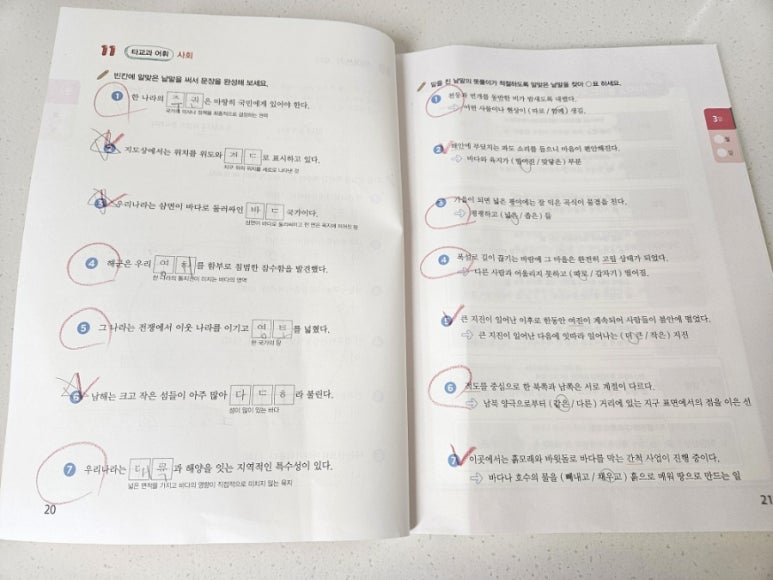 11 타교과 어휘 사회
빈칸에 알맞은 낱말을 써서 문장을 완성해 보세요.
1 한 나라의 주권은 마땅히 국민에게 있어야 한다.
국가의 의사나 정책을 최종적으로 결정하는 권력
2 지도상에서는 위치를 위도와 ㄷ로 표시하고 있다.
지구 위의 위치를 세로로 나타낸 것
3 우리나라는 삼면이 바다로 둘러싸인 바ㄷ 국가이다.
삼면이 바다로 둘러싸이고 한 면은 육지에 이어진 땅
4 해군은 우리 영해를 함부로 침범한 잠수함을 발견했다.
한 나라의 통치권이 미치는 바다의 영역
5 그 나라는 전쟁에서 이웃 나라를 이기고 영토를 넓혔다.
한 국가의 땅
6 남해는 크고 작은 섬들이 아주 많아 다ㄷㅎ라 불린다.
섬이 많이 있는 바다
7 우리나라는 대륙과 해양을 잇는 지역적인 특수성이 있다.
넓은 면적을 가지고 바다의 영향이 직접적으로 미치지 않는 육지
20
밑줄 친 낱말의 뜻풀이가 적절하도록 알맞은 낱말을 찾아 ○표 하세요.
1 천둥과 번개를 동반한 비가 밤새도록 내렸다.
어떤 사물이나 현상이 ( 따로 / 함께 ) 생김.
2 해안에 부딪치는 파도 소리를 들으니 마음이 편안해진다.
바다와 육지가 ( 떨어진 / 맞닿은 ) 부분
3 가을이 되면 넓은 평야에는 잘 익은 곡식이 물결을 친다.
평평하고 ( 넓은 / 좁은 ) 들
4 폭설로 길이 끊기는 바람에 그 마을은 완전히 고립 상태가 되었다.
다른 사람과 어울리지 못하고 ( 따로 / 갑자기 ) 떨어짐.
5 큰 지진이 일어난 이후로 한동안 여진이 계속되어 사람들이 불안에 떨었다.
큰 지진이 일어난 다음에 잇따라 일어나는 ( 더 큰 / 작은 ) 지진
6 적도를 중심으로 한 북쪽과 남쪽은 서로 계절이 다르다.
남북 양극으로부터 ( 같은 / 다른 ) 거리에 있는 지구 표면에서의 점을 이은 선
7 이곳에서는 흙모래와 바윗돌로 바다를 막는 간척 사업이 진행 중이다.
바다나 호수의 물을 ( 빼내고 / 채우고 ) 흙으로 메워 땅으로 만드는 일
3주
일
일
21